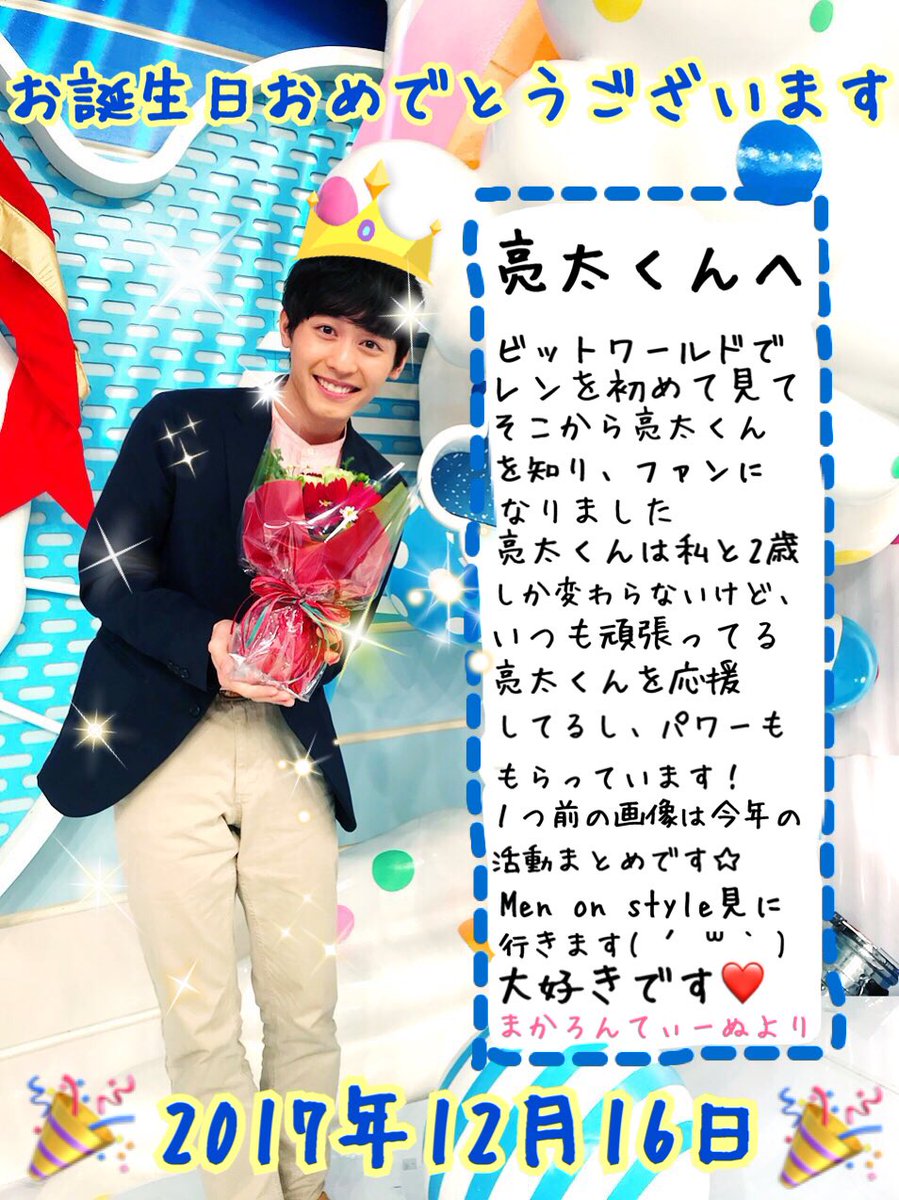 お誕生日おめでとうございます
亮太くんへ
ビットワールドで
レンを初めて見て
そこから亮太くん
を知り、ファンに
なりました
亮太くんは私と2歳
しか変わらないけど、
いつも頑張ってる
亮太くんを応援
してるし、パワーも
もらっています!
1つ前の画像は今年の
活動まとめです☆
Men on style見に
行きます( ´ ꒳ ` )
大好きです❤️
まかろんてぃーぬより
2017年12月16日